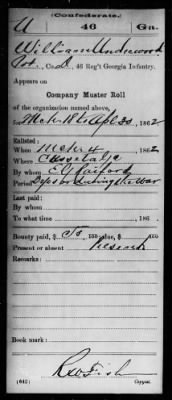 (Confederate.)
U 46 Ga.
William Underwood
Pvt., Co. D, 46 Reg't Georgia Infantry.
Appears on
Company Muster Roll
of the organization named above,
for Mch 18 to Apl 30, 1862
Enlisted:
When Mch 4, 1862
Where
By whom
Period 3 yrs or during the War
Last paid:
By whom
To what time , 186 .
Bounty paid, $ 50 100 due, $ 100
Present or absent Present
Remarks:
Book mark:
R W Fish
(642) Copyist.